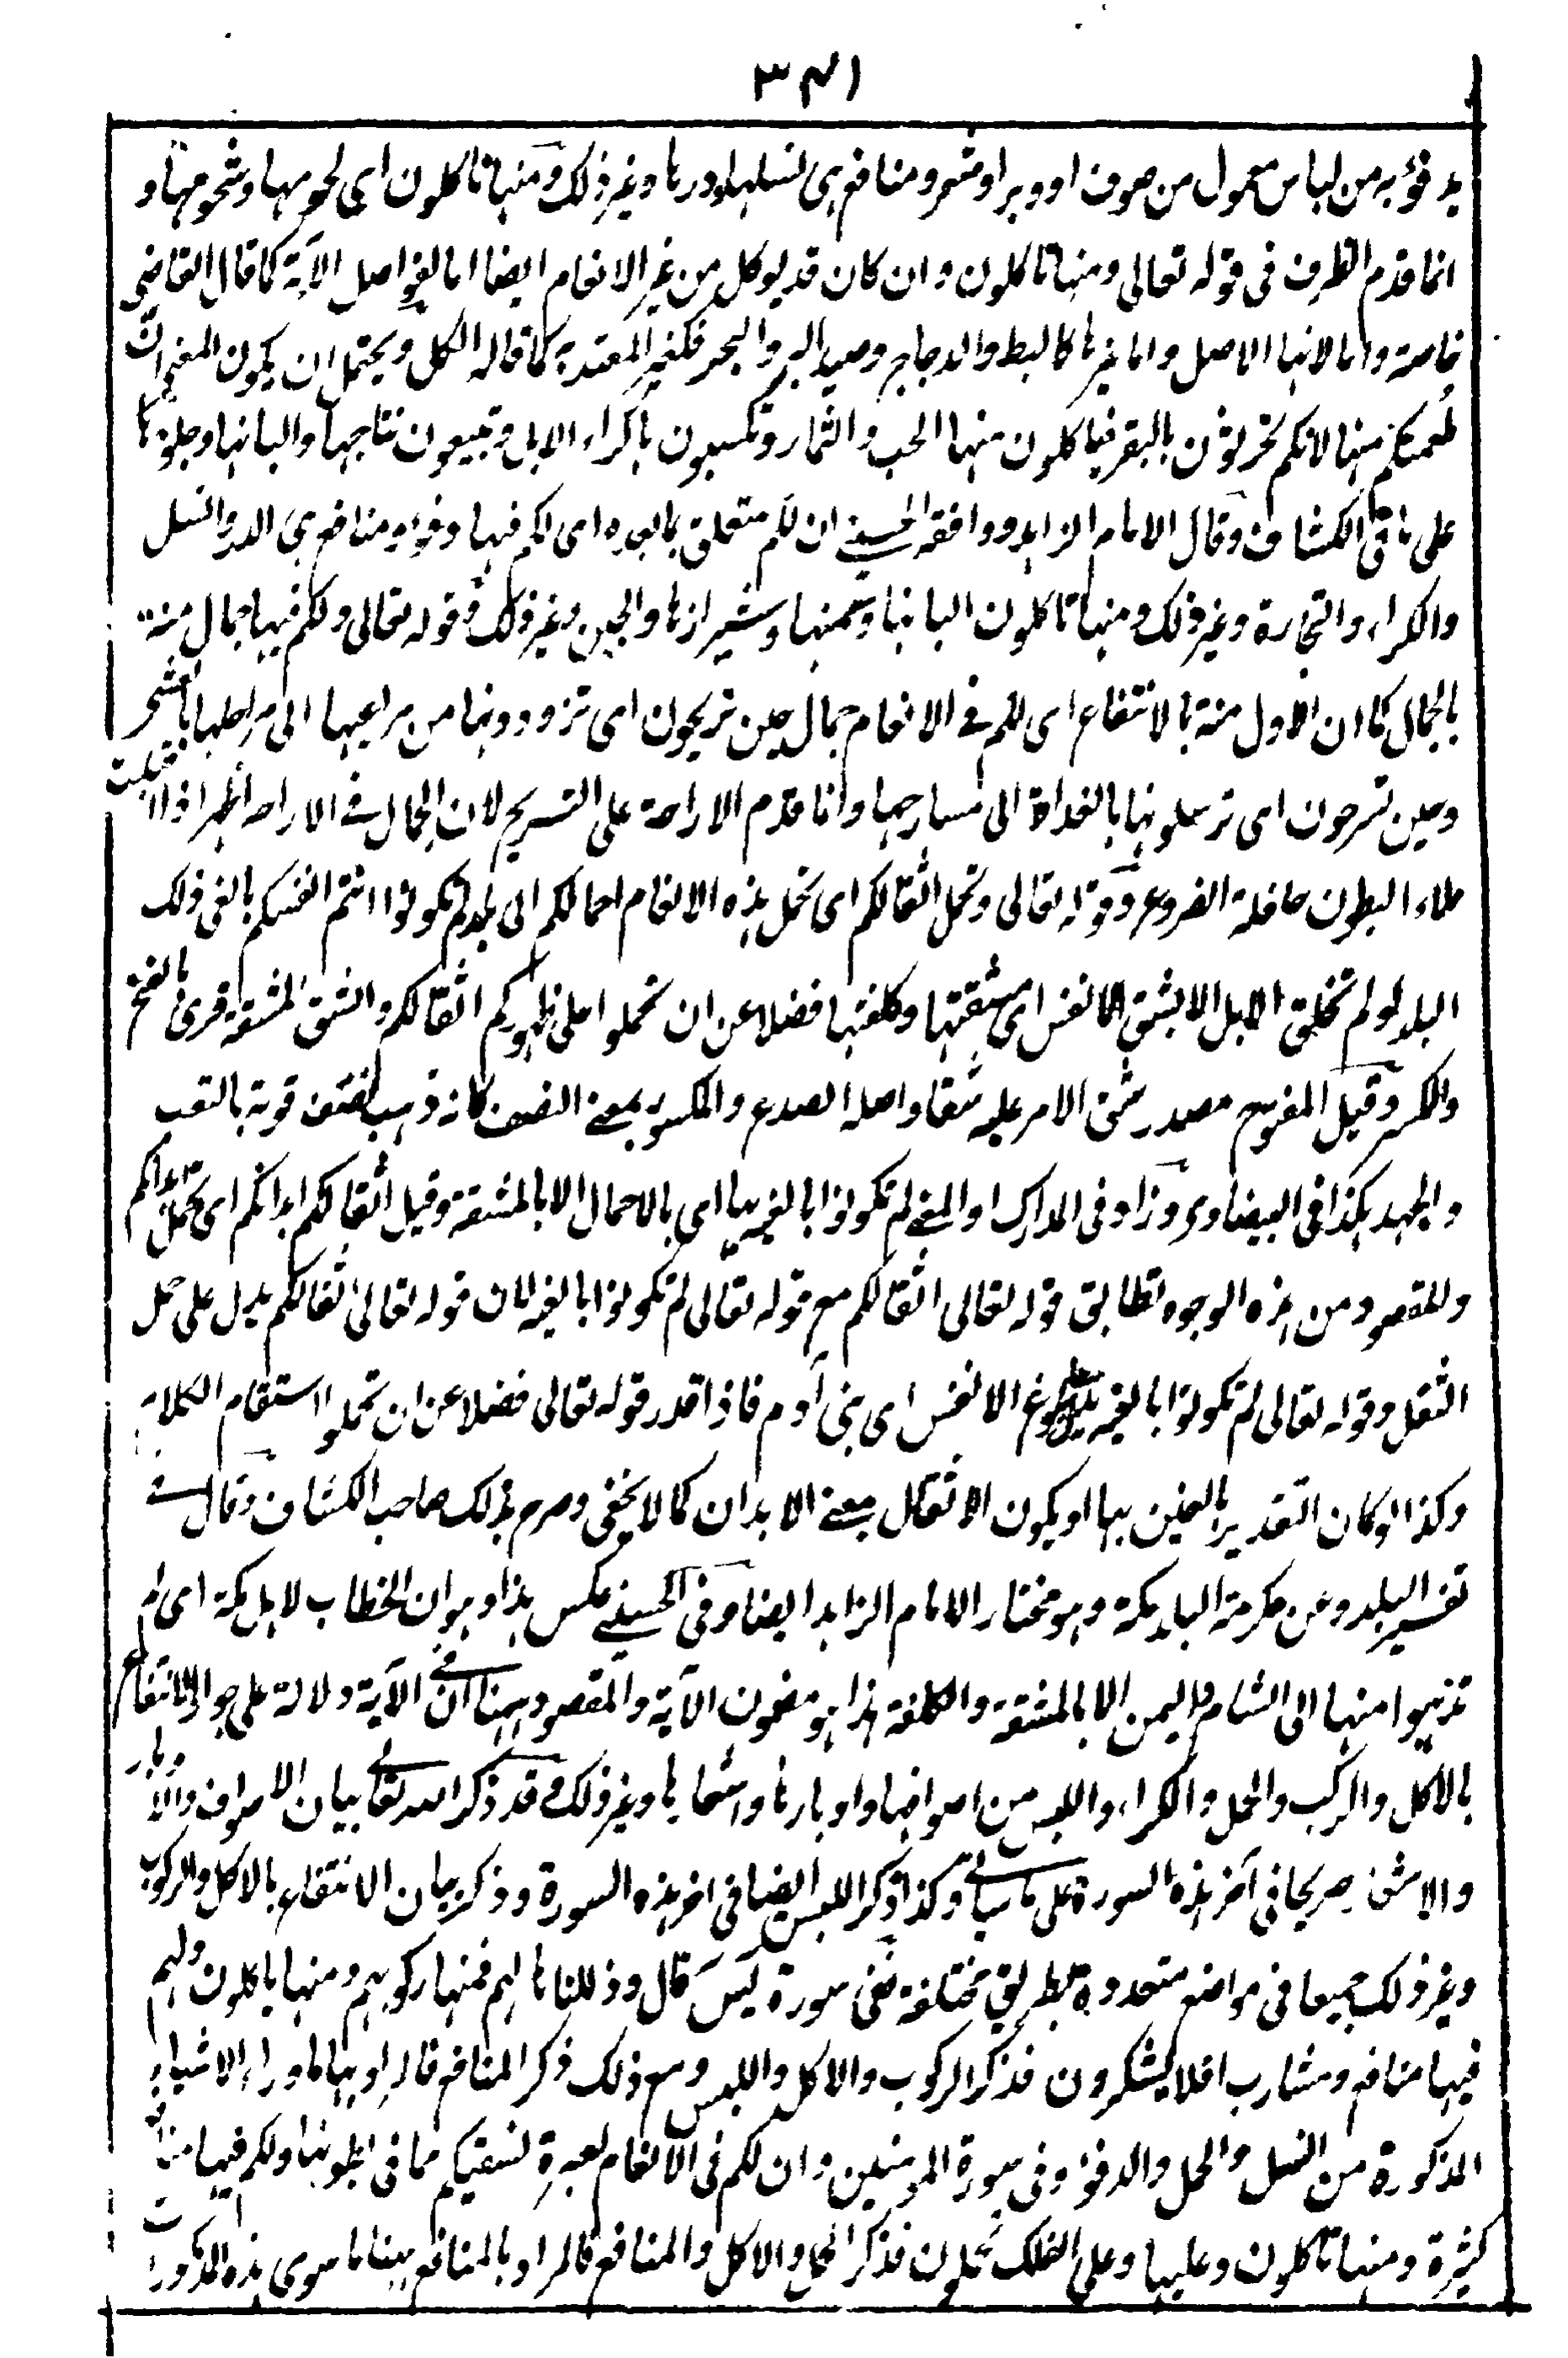 ٣٤١
يدفؤ به من لباس معمول من صوف او وبر او شعر ومنافع هى نسلها ودرها وغير ذلك ومنها تاكلون اى لحومها وشحومها و
انما قدم الظرف فى قوله تعالى ومنها تاكلون وان كان قد يوكل من غير الانعام ايضا اما لفواصل الآية كما قال القاضى
خاصة واما لانها الاصل واما غيرها كالبط والدجاج وصيد البر والبحر فكغير المعتد به كما قاله الكل ويحتمل ان يكون المعنى ان
طعمتكم منها لانكم تحرثون بالبقر فياكلون منها الحب والثمار وتكسبون باكراء الابل وتبيعون نتاجها والبانها وجلودها
على ما فى الكشاف وقال الامام الزاهد ووافقه الحسينى ان لكم متعلق بما بعده اى لكم فيها دفؤ ومنافع هى الدر والنسل
والكراء والتجارة وغير ذلك ومنها تاكلون البانها وسمنها وشيرازها والجبن وغير ذلك وقوله تعالى ولكم فيها جمال منة
بالجمال كما ان الاول منة بالانتفاع اى لكم فى الانعام جمال حين تريحون اى تردونها من مراعيها الى مراحلها بالعشى
وحين تسرحون اى ترسلونها بالغداة الى مسارحها وانما قدم الاراحة على التسريح لان الجمال فى الاراحة اظهر اذا اقبلت
ملاء البطون حافلة الضروع وقوله تعالى وتحمل اثقالكم اى تحمل هذه الانعام احمالكم الى بلد لم تكونوا انتم انفسكم بالغى ذلك
البلد لو لم تخلق الابل الا بشق الانفس اى مشقتها وكلفتها فضلا عن ان تحملوا على ظهوركم اثقالكم والشق المشقة قرئ بالفتح
والكسر وقيل المفتوح مصدر شق الامر عليه شقا واصله الصدع والمكسور بمعنى النصف كانه ذهب نصف قوته بالتعب
والجهد هكذا فى البيضاوى وزاد فى المدارك او المعنى لم تكونوا بالغيه بها اى بالاحمال الا بالمشقة وقيل اثقالكم ابدانكم اى تحمل ابدانكم
والمقصود من هذه الوجوه تطابق قوله تعالى اثقالكم مع قوله تعالى لم تكونوا بالغيه لان قوله تعالى اثقالكم يدل على حمل
الثقل وقوله تعالى لم تكونوا بالغيه يدل على بلوغ الانفس اى بنى آدم فاذا قدر قوله تعالى فضلا عن ان تحملوا استقام الكلام
وكذا لو كان التقدير بالغين بها او يكون الاثقال بمعنى الابدان كما لا يخفى وصرح بذلك صاحب الكشاف وقال فى
تفسير البلد وعن عكرمة البلد مكة وهو مختار الامام الزاهد ايضا وفى الحسينى عكس هذا وهو ان الخطاب لاهل مكة اى لم
تذهبوا منها الى الشام واليمن الا بالمشقة والكلفة هذا هو مضمون الآية والمقصود ههنا ان فى الآية دلالة على جواز الانتفاع
بالاكل والركب والحمل والكراء واللبس من اصوافها واوبارها واشعارها وغير ذلك وقد ذكر الله تعالى بيان الاصواف والاوبار
والاشعار صريحا فى آخر هذه السورة على ما سيأتى وكذا ذكر اللبس ايضا فى اخر هذه السورة وذكر بيان الانتفاع بالاكل والركوب
وغير ذلك جميعا فى مواضع متعددة بطريق مختلفة ففى سورة يس قال وذللناها لهم فمنها ركوبهم ومنها ياكلون ولهم
فيها منافع ومشارب افلا يشكرون فذكر الركوب والاكل واللبس ومع ذلك ذكر المنافع فالمراد بها ما وراء الاشياء
المذكورة من النسل والحمل والدفؤ وفى سورة المومنين وان لكم فى الانعام لعبرة نسقيكم مما فى بطونها ولكم فيها منافع
كثيرة ومنها تاكلون وعليها وعلى الفلك تحملون فذكر والاكل والمنافع فالمراد بالمنافع ههنا ما سوى هذه المذكورات